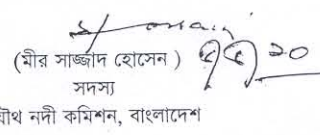 (মীর সাজ্জাদ হোসেন )
সদস্য
যৌথ নদী কমিশন, বাংলাদেশ